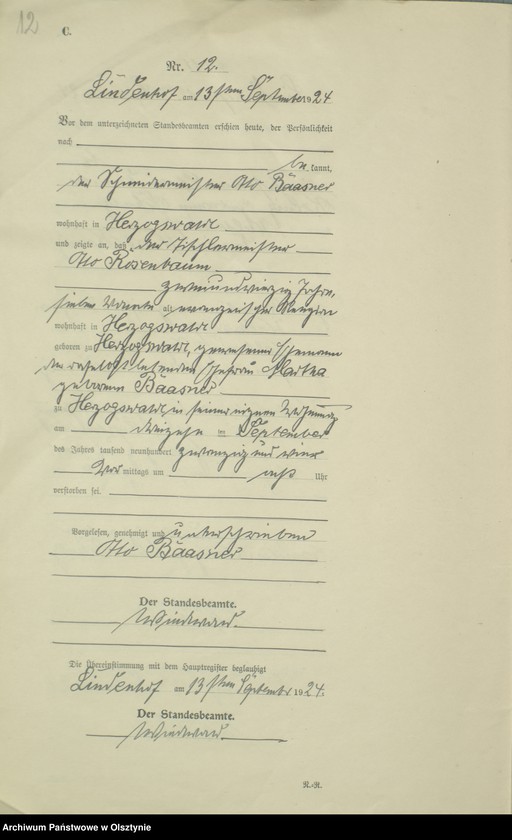 12
C.
Nr. 12.
Lindenhof am 13ten September 1924
Vor dem unterzeichneten Standesbeamten erschien heute, der Persönlichkeit
nach
be kannt,
der Schmiedemeister Otto Baasner
wohnhaft in Herzogswalde
und zeigte an, daß der Tischlermeister
Otto Rosenbaum
zweiundvierzig Jahre,
sieben Monate alt evangelischer Religion
wohnhaft in Herzogswalde
geboren zu Herzogswalde, gewesener Ehemann
der daselbst lebenden Ehefrau Martha
geborene Baasner
zu Herzogswalde, in seiner eigenen Wohnung
am dreizehn ten September
des Jahres tausend neunhundert zwanzig und vier
Vor mittags um acht Uhr
verstorben sei.
Vorgelesen, genehmigt und unterschrieben
Otto Baasner
Der Standesbeamte.
Die Übereinstimmung mit dem Hauptregister beglaubigt
Lindenhof am 13ten September 1924.
Der Standesbeamte.
R.-R.
Archiwum Państwowe w Olsztynie